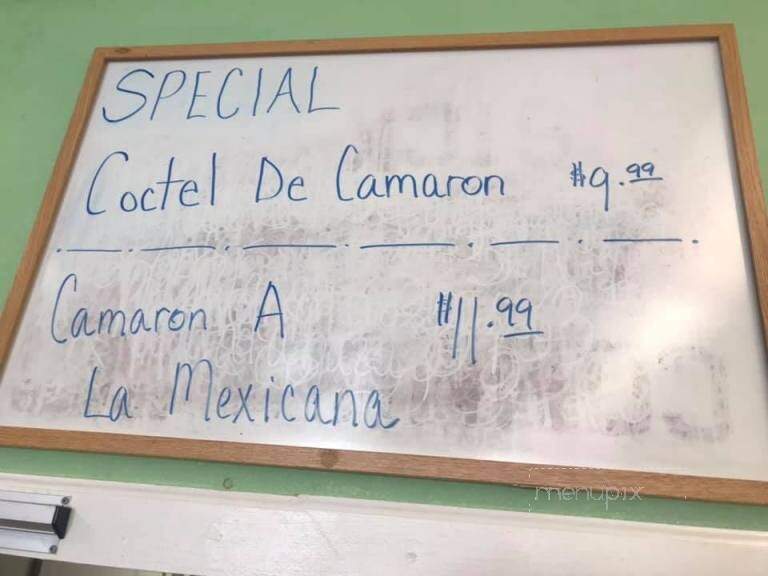 SPECIAL
Coctel De Camaron $9.99
Camaron A $11.99
La Mexicana
menupix